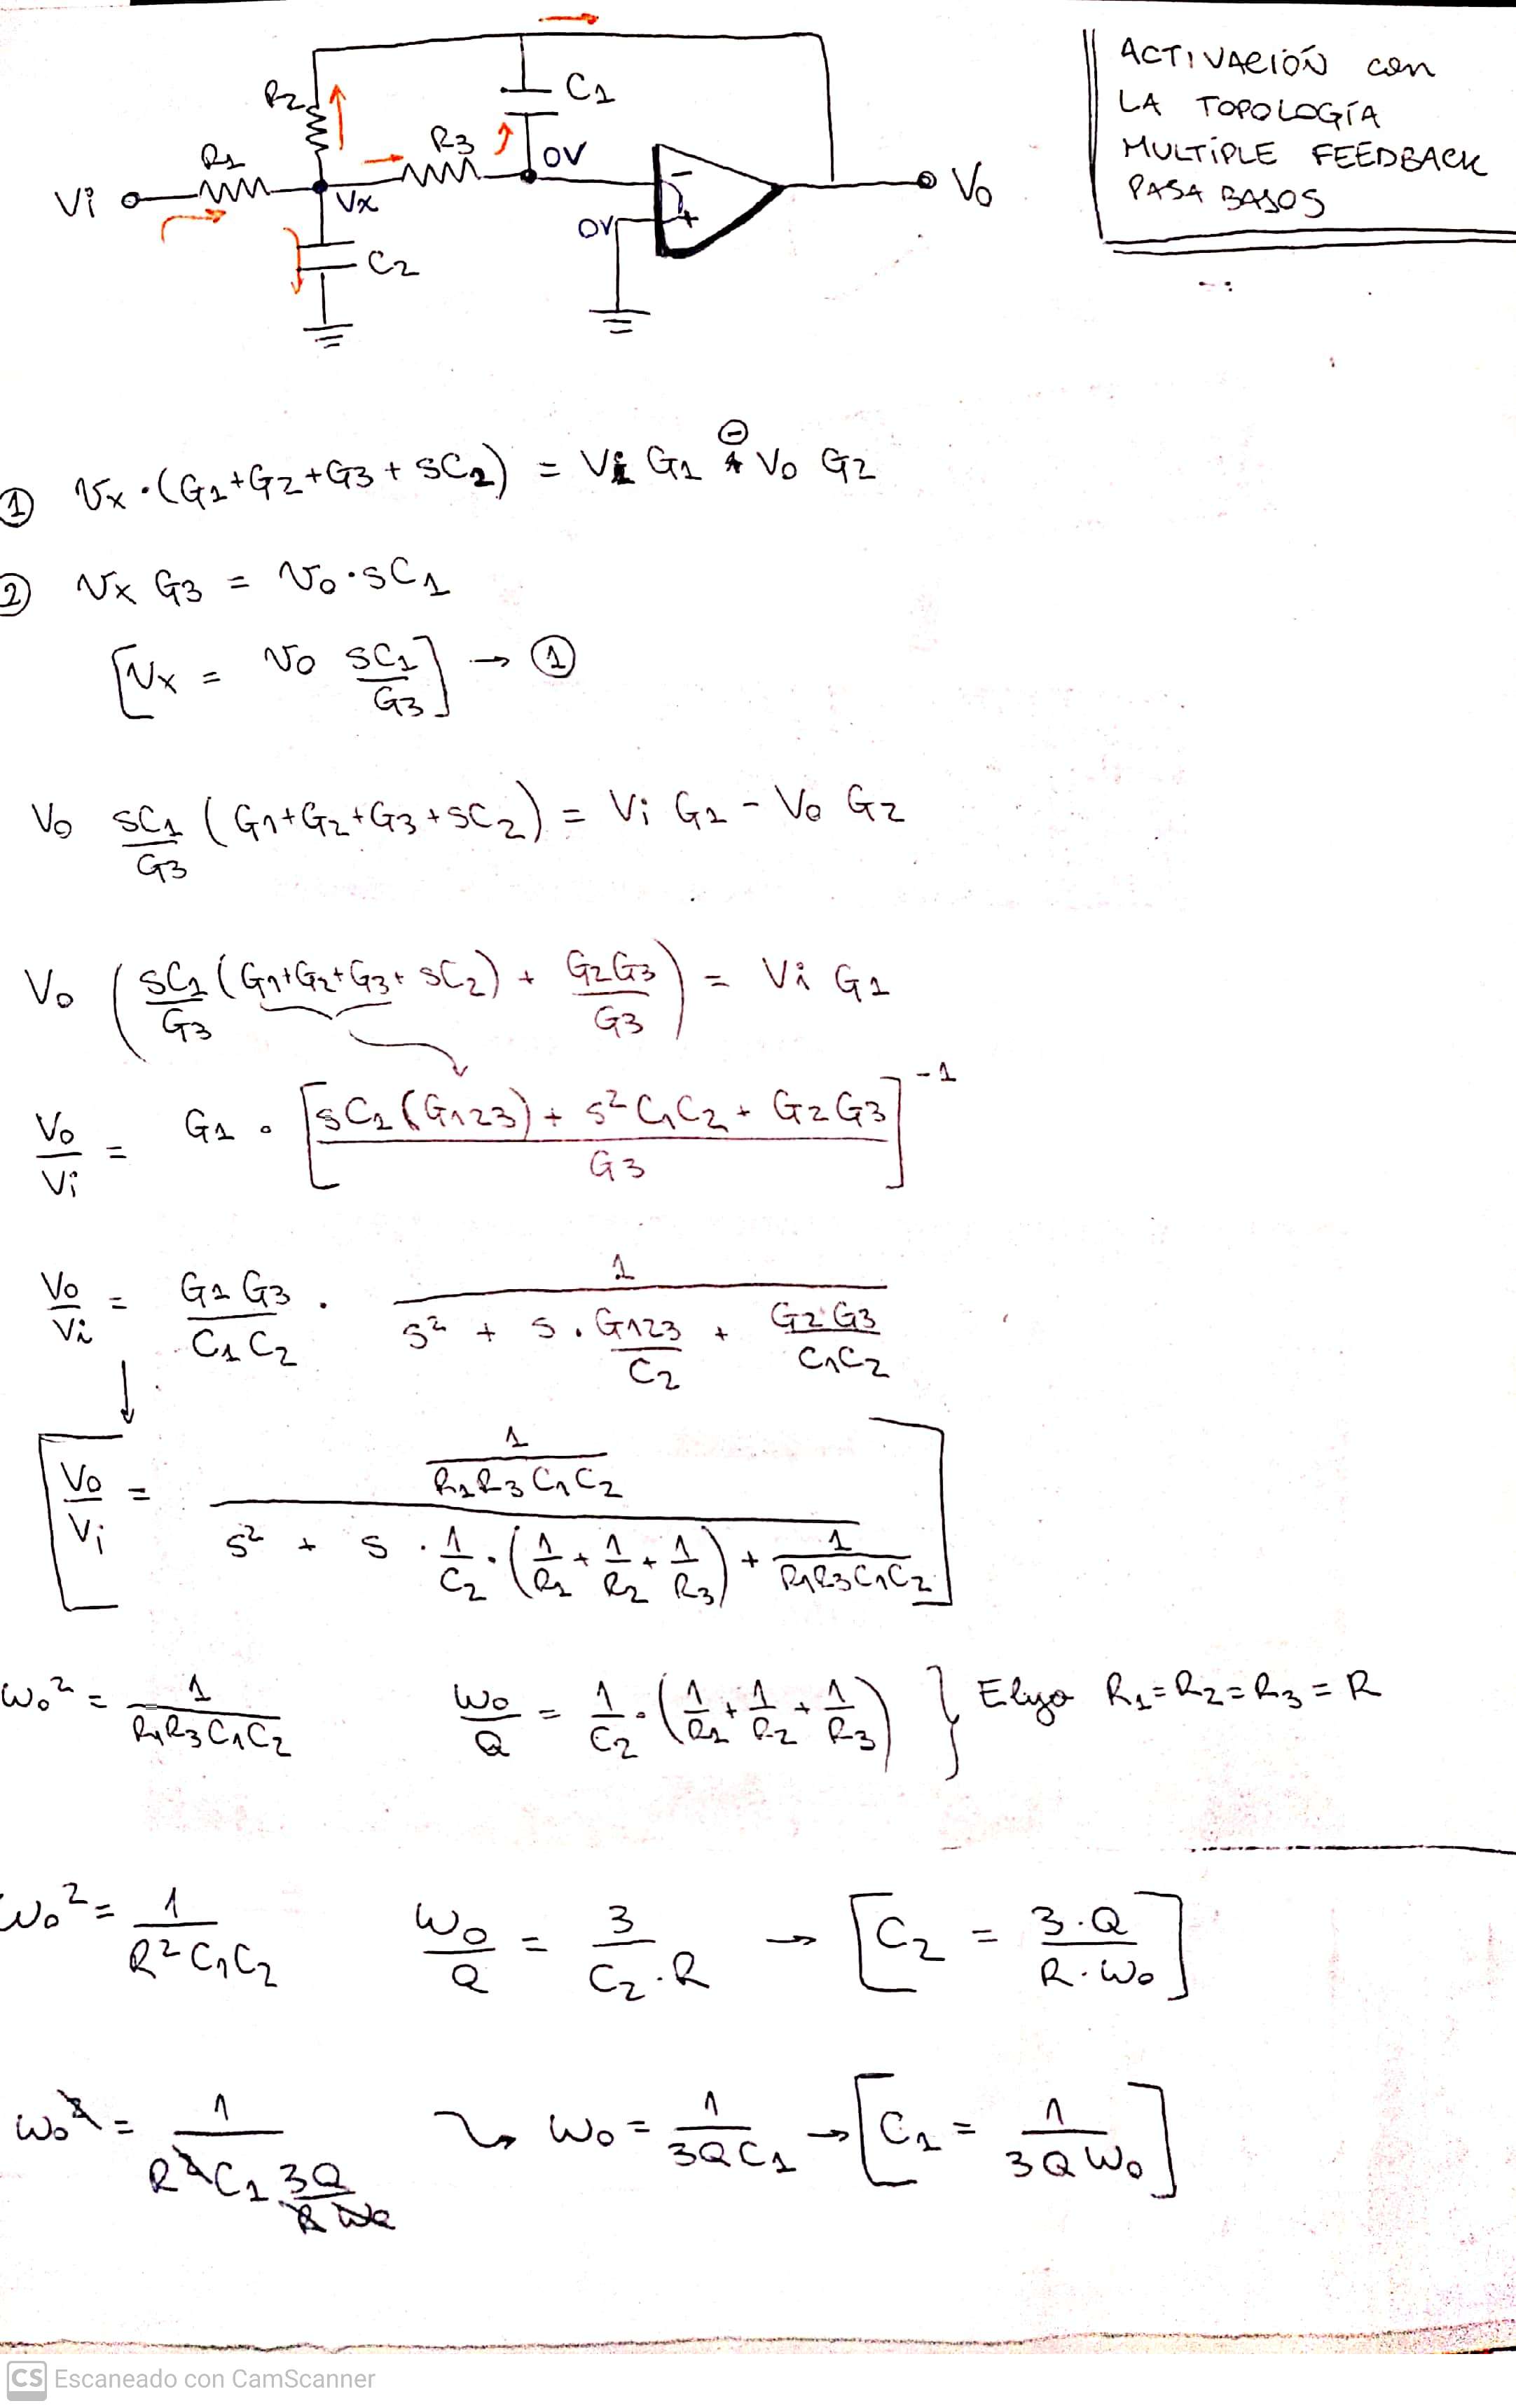 ACTIVACIÓN con
LA TOPOLOGÍA
MULTIPLE FEEDBACK
PASA BAJOS
R2
C1
R3
0V
R1
Vi
Vx
0V
- +
Vo
C2
① Vx · (G1+G2+G3 + sC2) = Vi G1 ⊖ Vo G2
② Vx G3 = Vo · sC1
[Vx = Vo sC1/G3] → ①
Vo sC1/G3 (G1+G2+G3+sC2) = Vi G1 - Vo G2
Vo (sC1/G3 (G1+G2+G3+sC2) + G2G3/G3) = Vi G1
Vo/Vi = G1 · [(sC1(G123) + s² C1C2 + G2G3)/G3]^-1
Vo/Vi = G1 G3/C1 C2 · 1/(s² + s · G123/C2 + G2·G3/C1C2)
[Vo/Vi = (1/R1R3C1C2)/(s² + s · 1/C2 · (1/R1 + 1/R2 + 1/R3) + 1/R1R3C1C2)]
ω0² = 1/R1R3C1C2 ω0/Q = 1/C2 · (1/R1 + 1/R2 + 1/R3) } Elijo R1=R2=R3=R
ω0² = 1/R²C1C2 ω0/Q = 3/C2·R → [C2 = 3·Q/R·ω0]
ω0² = 1/(R²C1 3Q/Rω0) ↝ ω0 = 1/3QC1 → [C1 = 1/3Qω0]
CS Escaneado con CamScanner